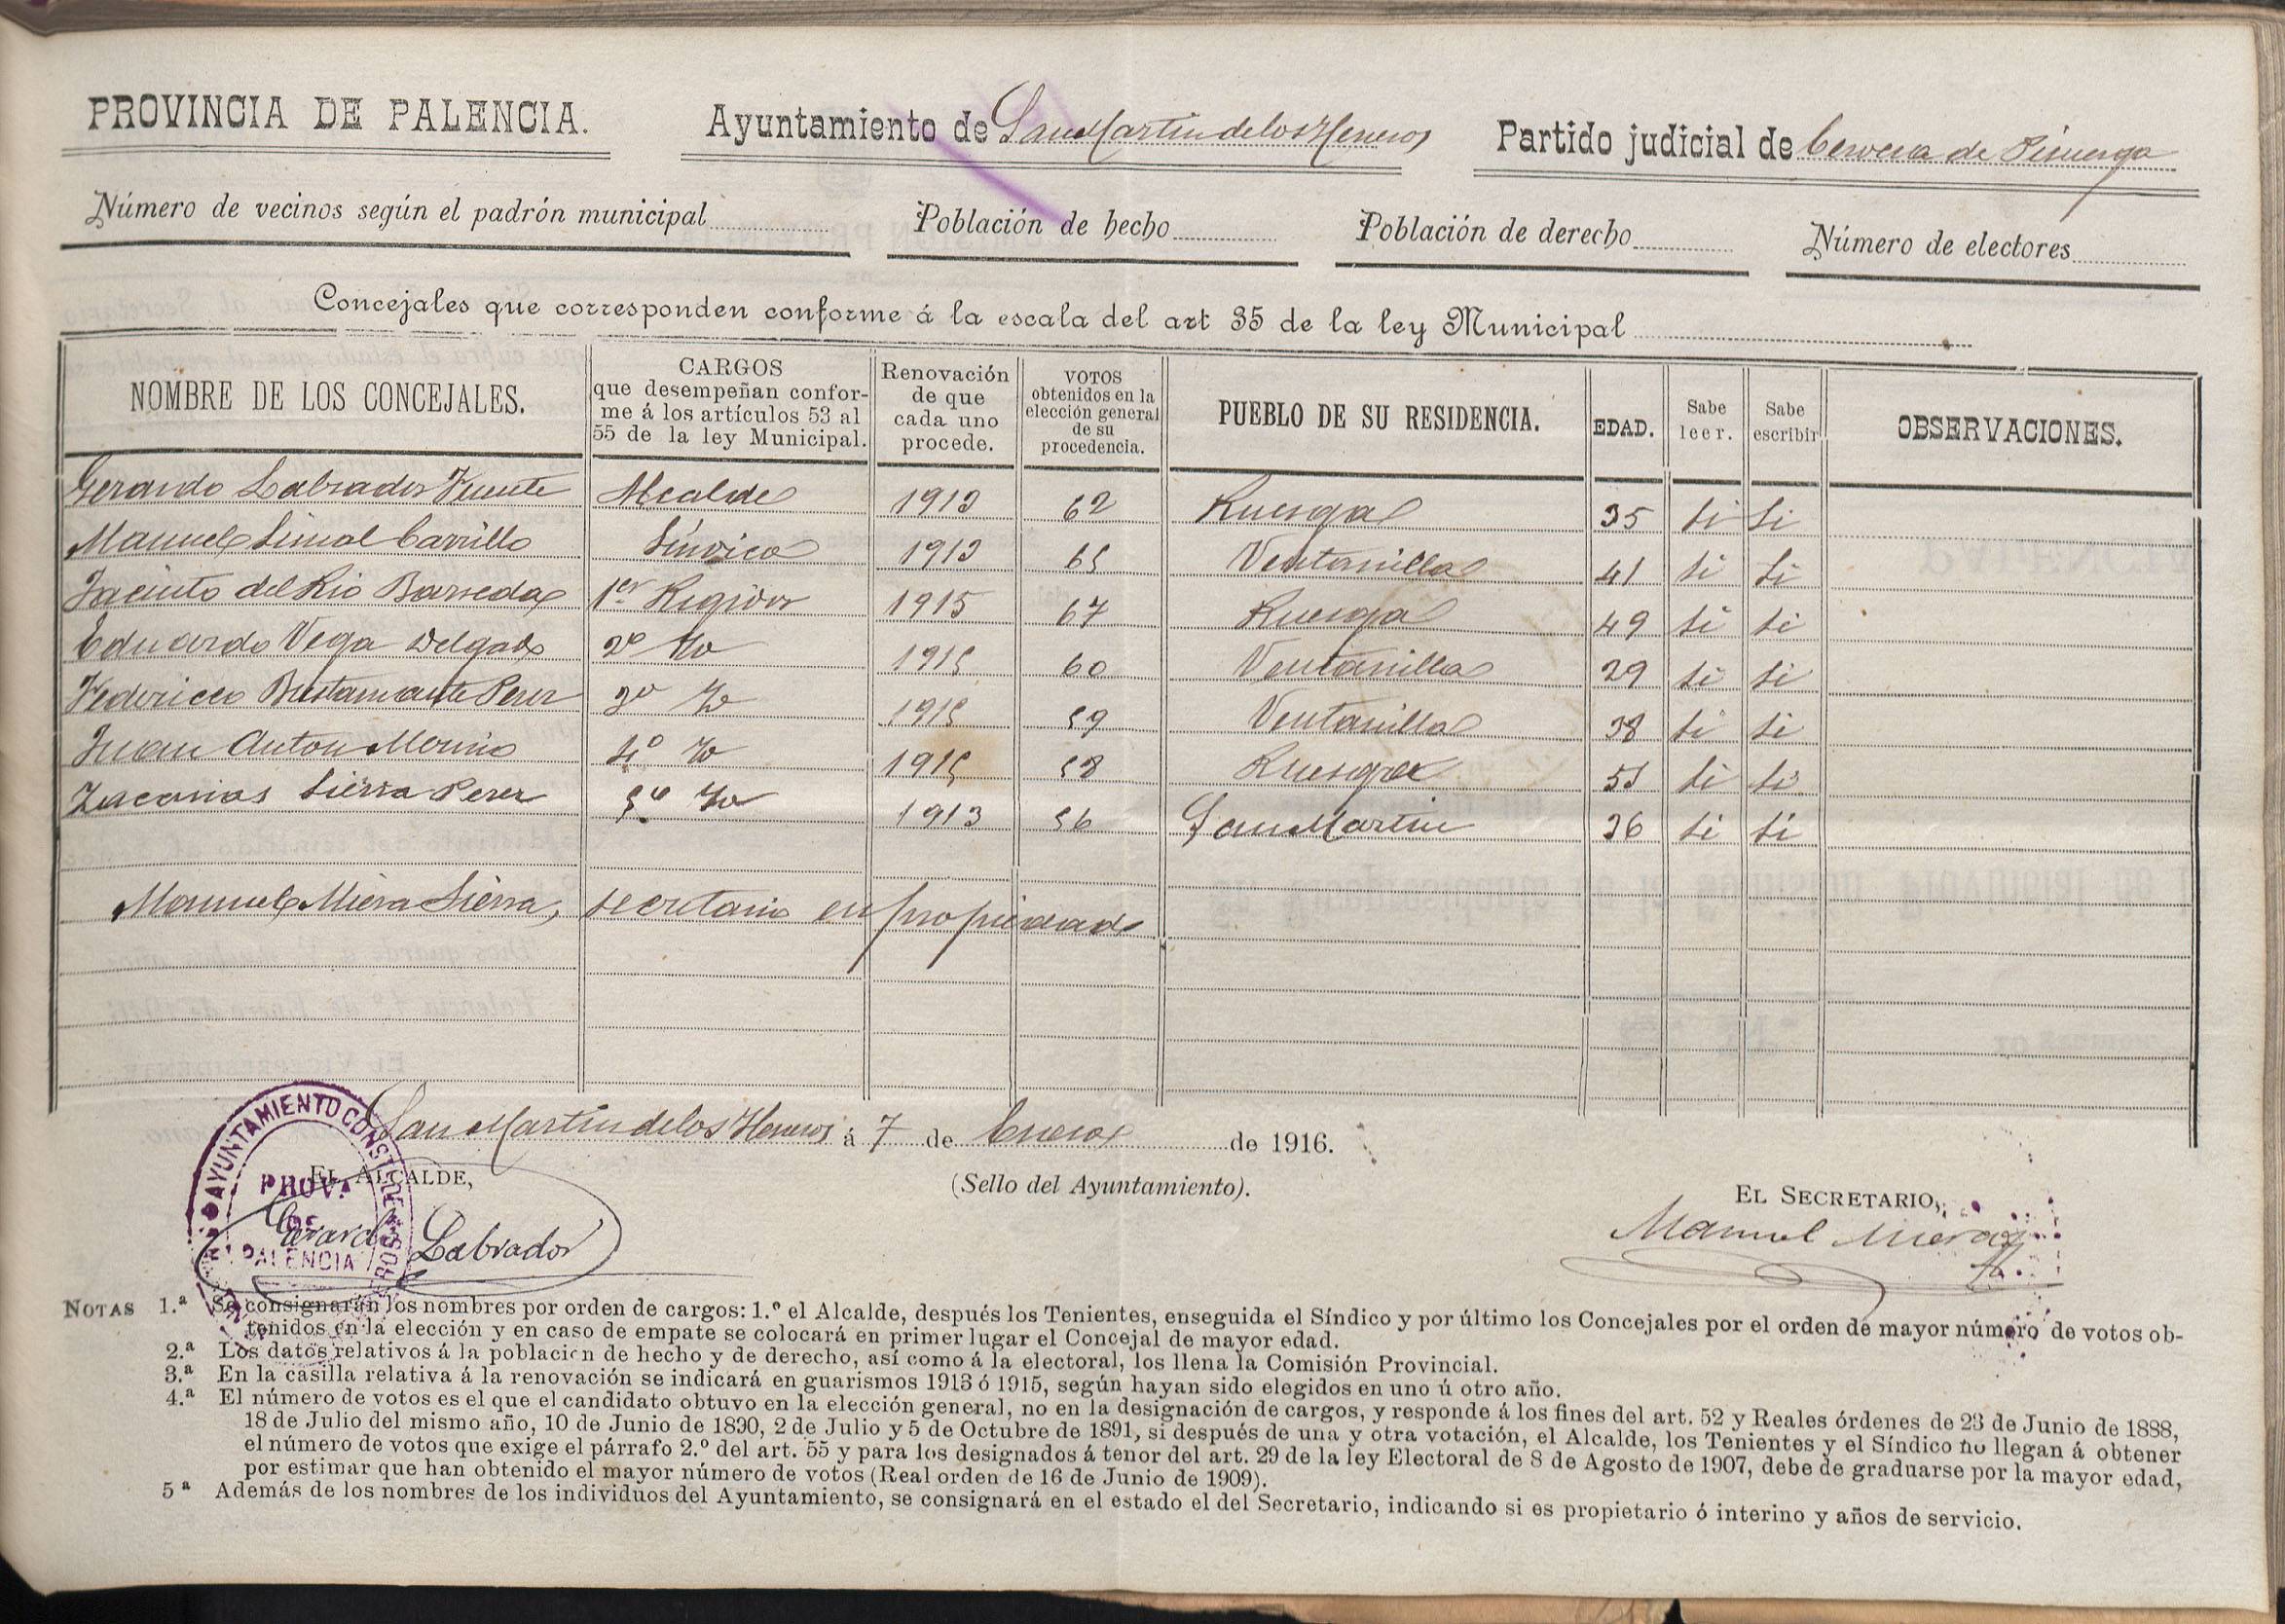 PROVINCIA DE PALENCIA. Ayuntamiento de San Martin de los Herreros Partido judicial de Cervera de Pisuerga
Número de vecinos según el padrón municipal Población de hecho Población de derecho Número de electores
Concejales que corresponden conforme á la escala del art 35 de la ley Municipal
NOMBRE DE LOS CONCEJALES. CARGOS que desempeñan conforme á los artículos 53 al 55 de la ley Municipal. Renovación de que cada uno procede. VOTOS obtenidos en la elección general de su procedencia. PUEBLO DE SU RESIDENCIA. EDAD. Sabe leer. Sabe escribir OBSERVACIONES.
Gerardo Labrador Vicente Alcalde 1913 62 Ruesga 35 si si
Manuel Simal Carrillo Síndico 1913 65 Ventanilla 41 si si
Jacinto del Rio Barreda 1er Regidor 1915 67 Ruesga 49 si si
Eduardo Vega Delgado 2º Yd 1915 60 Ventanilla 29 si si
Federico Bustamante Perez 3º Yd 1915 59 Ventanilla 38 si si
Juan Anton Merino 4º Yd 1915 58 Ruesga 55 si si
Zacarias Sierra Perez 5º Yd 1913 56 San Martin 36 si si
Manuel Miera Sierra, secretario en propiedad
San Martin de los Herreros á 7 de Enero de 1916.
EL ALCALDE, (Sello del Ayuntamiento). EL SECRETARIO,
AYUNTAMIENTO CONST
PROV.A DE PALENCIA
Gerardo Labrador Manuel Miera
NOTAS 1.ª Se consignarán los nombres por orden de cargos: 1.º el Alcalde, después los Tenientes, enseguida el Síndico y por último los Concejales por el orden de mayor número de votos ob-
tenidos en la elección y en caso de empate se colocará en primer lugar el Concejal de mayor edad.
2.ª Los datos relativos á la población de hecho y de derecho, así como á la electoral, los llena la Comisión Provincial.
3.ª En la casilla relativa á la renovación se indicará en guarismos 1913 ó 1915, según hayan sido elegidos en uno ú otro año.
4.ª El número de votos es el que el candidato obtuvo en la elección general, no en la designación de cargos, y responde á los fines del art. 52 y Reales órdenes de 23 de Junio de 1888,
18 de Julio del mismo año, 10 de Junio de 1890, 2 de Julio y 5 de Octubre de 1891, si después de una y otra votación, el Alcalde, los Tenientes y el Síndico no llegan á obtener
el número de votos que exige el párrafo 2.º del art. 55 y para los designados á tenor del art. 29 de la ley Electoral de 8 de Agosto de 1907, debe de graduarse por la mayor edad,
por estimar que han obtenido el mayor número de votos (Real orden de 16 de Junio de 1909).
5 ª Además de los nombres de los individuos del Ayuntamiento, se consignará en el estado el del Secretario, indicando si es propietario ó interino y años de servicio.